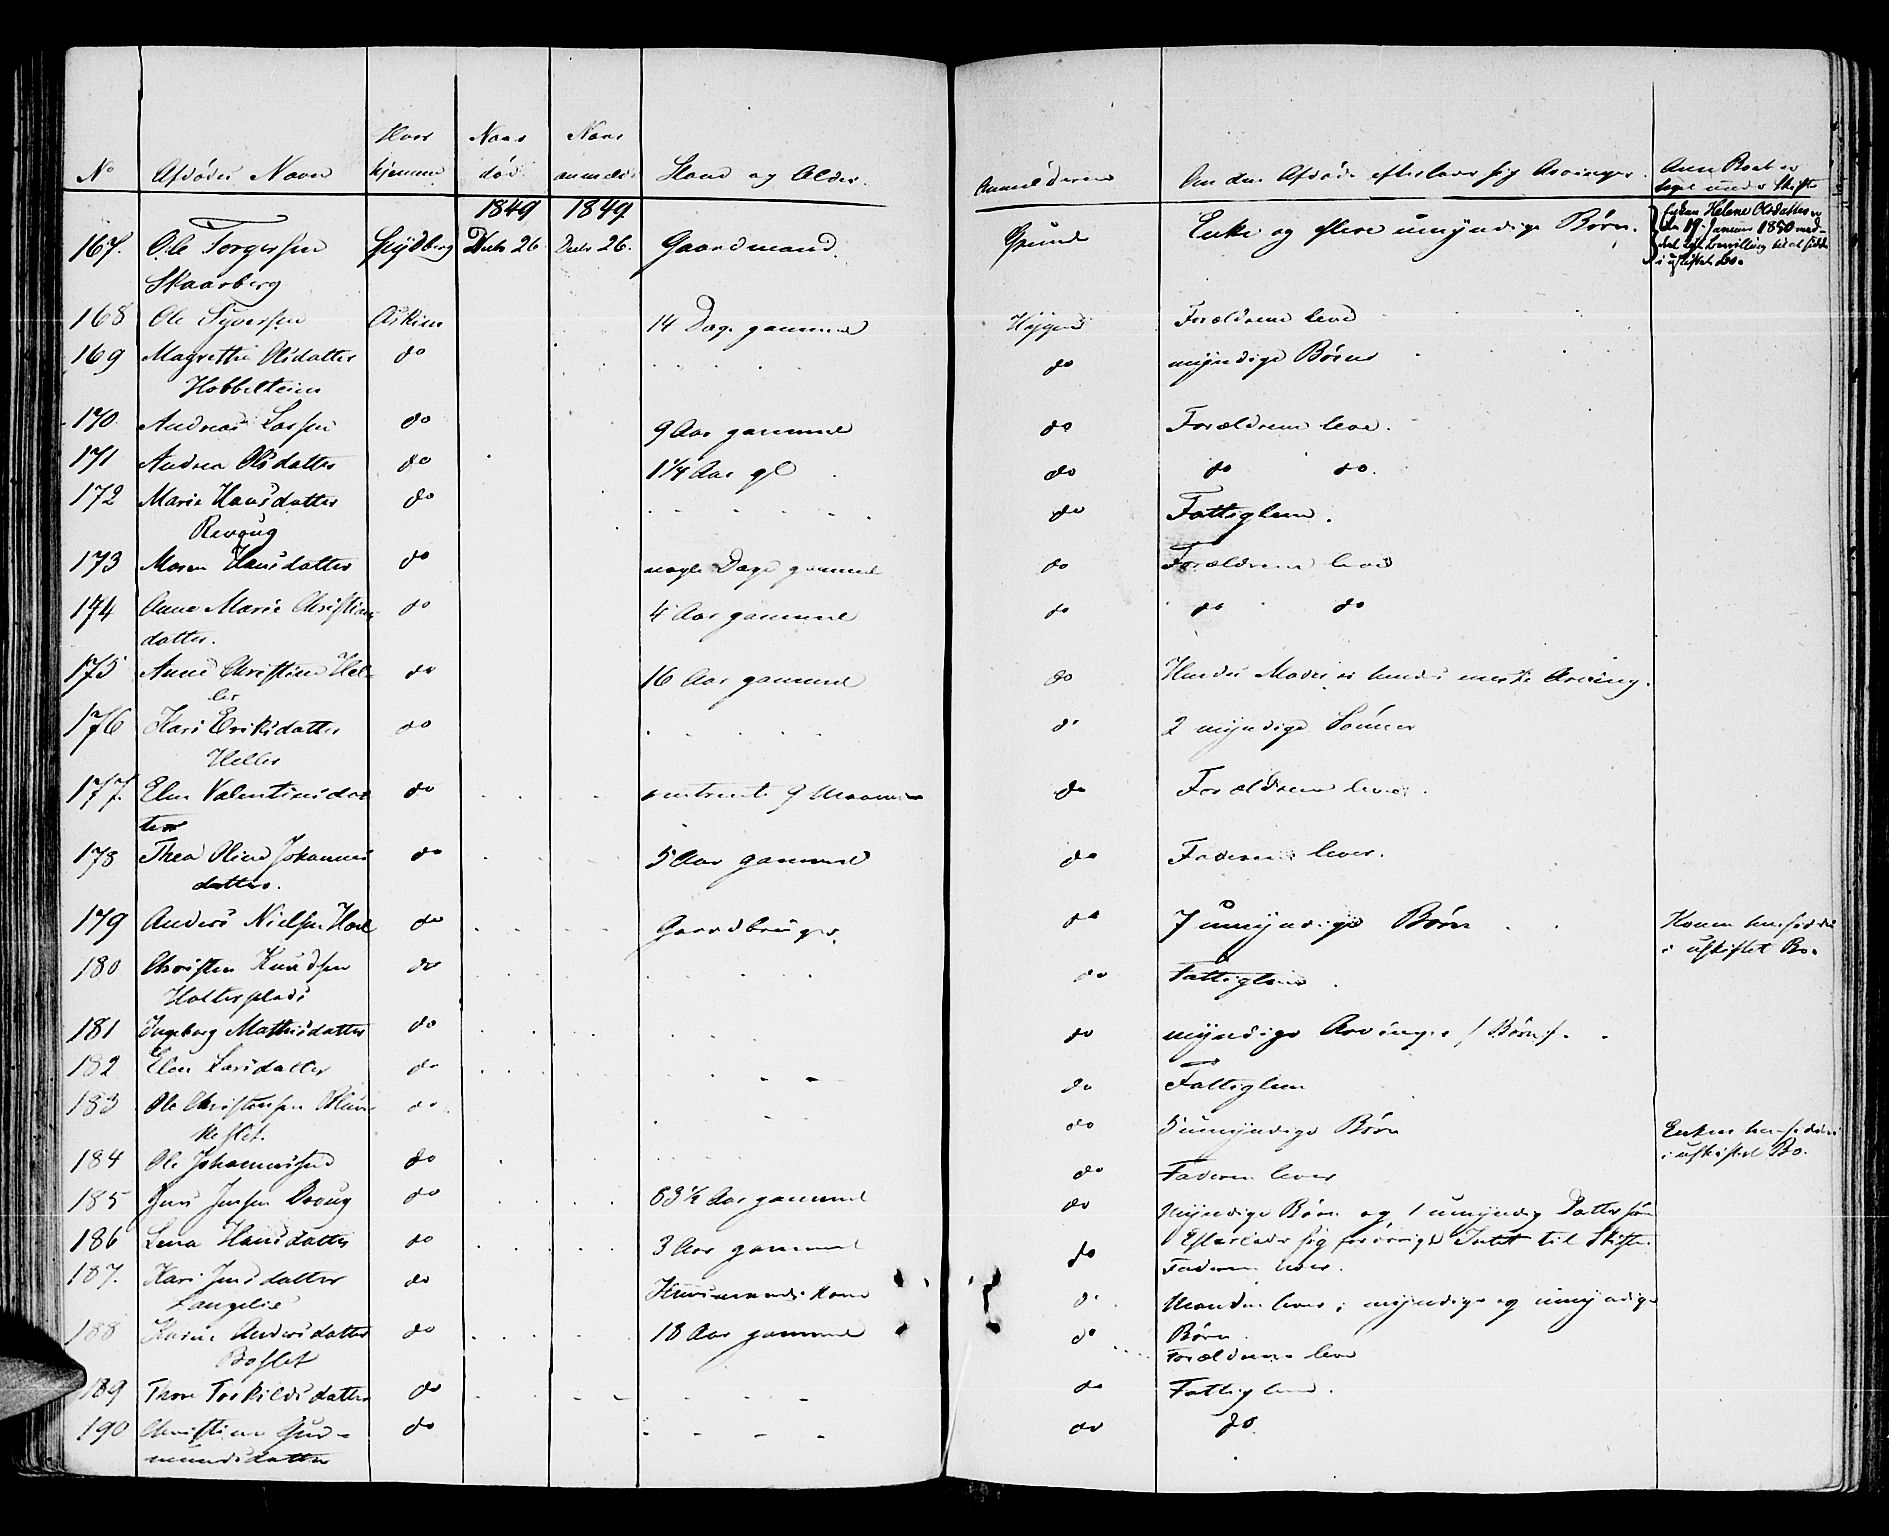 No | Afdødes Navn | Hvor hjemme | Naar død | Naar anmeldt | Stand og Alder | Anmelderen | Om den Afdøde efterlader sig Arvinger. | Anm Boet er taget under Skifte
1849 | 1849
167. | Ole Torgersen | Spydberg | Decbr 26 | Decbr 26. | Gaardmand. | Grund | Enke og flere umyndige Børn. | Enken Helene Olsdatter er den 19 Januar 1850 meddelt Bevilling til at sidde i uskiftet Bo.
Skaarberg
168 | Ole Syversen | Askim | 14 Dage gammel | Forældrene leve
169 | Magrethe Olsdatter | do | do | myndige Børn
170. | Andreas Larsen | do | 9 Aar gammel | do | Forældrene leve.
171 | Andrea Olsdatter | do | 1¼ Aar gl | do | do do.
172 | Marie Hansdatter | do | do | Fattiglem.
Revoug
173 | Maren Hansdatter | do | nogle Dage gammel | do | Forældrene leve
174 | Anne Marie Christian- | do | 4 Aar gammel | do | do do
datter.
175 | Anne Christine Hel- | do | 16 Aar gammel | do | Hendes Moder er hendes næste Arving.
ler
176 | Kari Eriksdatter | do | do | 2 myndige Sønner
Heller
177. | Elen Valentinsdat | do | omtrent 9 Maaneder | do | Forældrene leve.
ter
178 | Thea Oline Johannes | do | 5 Aar gammel | do | Faderen lever.
datter.
179 | Anders Nielsen | do | Gaardbruger. | do | 7 umyndige Børn | Konen hensidder
i uskiftet Bo.
180 | Christen Knudsen | do | do | Fattiglem
Holtersplads
181 | Ingeborg Mathisdatter | do | do | myndige Arvinger /: Børn :/.
182 | Elen Larsdatter | do | do | Fattiglem
183 | Ole Christensen | do | do | 5 umyndige Børn | Enken hensidder
i uskiftet Bo.
184 | Ole Johannessen | do | do | Faderen lever
185 | Jens Jensen | do | 83½ Aar gammel | do | Myndige Børn og 1 umyndig Dattersøn
186 | Lena Hansdatter | do | 3 Aar gammel | do | Efterlader sig forøvrigt Intet til Skifte.
Faderen lever.
187. | Kari Jensdatter | do | Huusmands Kone | do | Manden lever; myndige og umyndige
Langelie | Børn.
188 | Karen Andersdatter | do | 18 Aar gammel | do | Forældrene leve
189 | Thore Torkildsdatter | do | do | Fattiglem.
190 | Christine Gud- | do | do | do.
mundsdatter